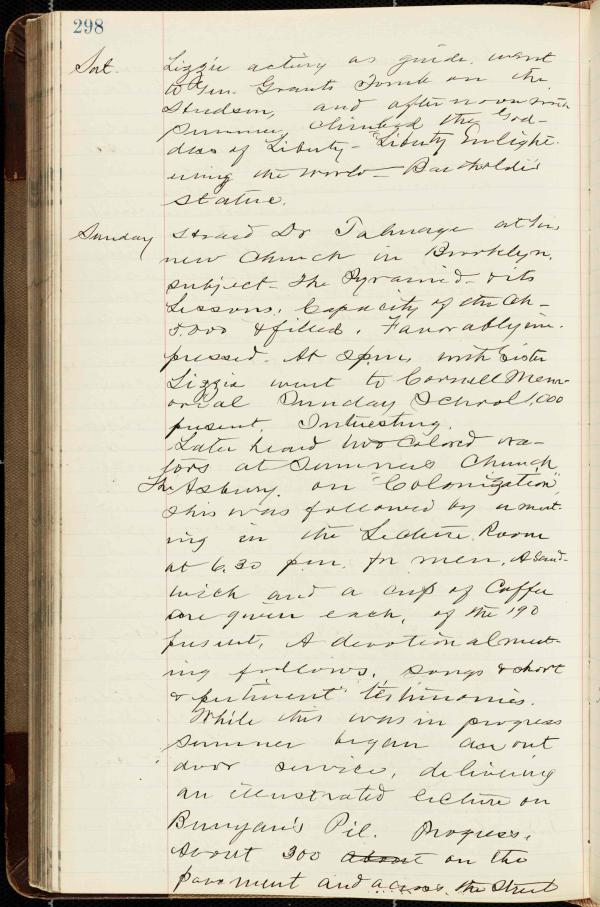 298
Sat. Lizzie acting as guide. went
to Gen. Grants Tomb on the
Hudson, and afternoon with
Summer climbed the God-
dess of Liberty - "Liberty Enlight-
ening the World - Bartholdi's
Statue.
Sunday Heard Dr Talmage at his
new Church in Brooklyn.
subject - The Pyramid - & its
Lessons. Capacity of the Ch -
5.000 & filled. Favorably im-
pressed. At 3 pm, with Sister
Lizzie went to Cornell Mem-
orial Sunday School 1,000
present. Interesting.
Later heard two Colored ora-
tors at Summers Church
The Asbury. on "Colonization",
This was followed by a meet-
ing in the Lecture Room
at 6.30 p.m. for men. A Sand-
wich and a cup of Coffee
are given each, of the 190
present. A devotional meet-
ing follows, songs & short
& pertinent testimonies.
While this was in progress
Summer began an out
door service, delivering
an illustrated lecture on
Bunyan's Pil. Progress.
About 300 about on the
pavement and across the Street